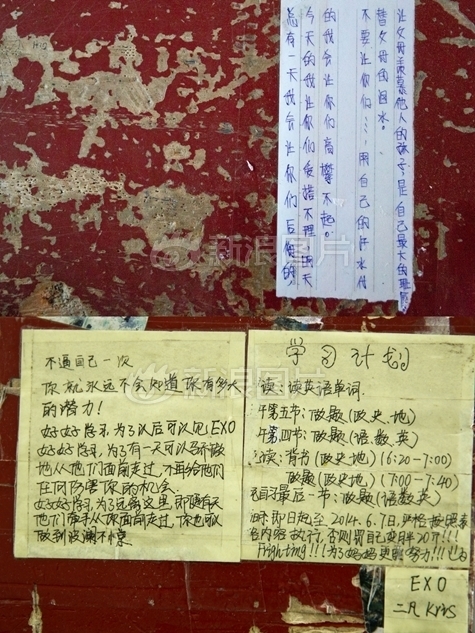 总有一天我会让你们后悔的
今天的我让你们爱搭不理,明天
的我会让你们高攀不起。
不要让你们、、、用自己的汗水代
替父母的泪水。
让父母羡慕他人的孩子,是自己最大的耻辱
新浪图片
不逼自己一次
你就永远不会知道你有多大
的潜力!
好好学习,为了以后可以见EXO
好好学习,为了有一天可以高傲
地从他们面前走过,不再给他们
任何伤害你的机会.
好好学习,为了远离这里,即使有天
他们牵手从你面前走过,你也可以
做到波澜不惊
学习计划
读:读英语单词.
午第五节:做题(政.史.地)
午第四节:做题(语.数.英)
读:背书(政史地)(6:20-7:00)
做题(政史地)(7:00-7:40)
最后一节:做题(语数英)
即日起至2014.6.7日,严格按照表
内容执行,否则罚自己变胖20斤!!!
Fighting!!!为了妈妈更要努力!!!
EXO
二凡 Kris
新浪图片